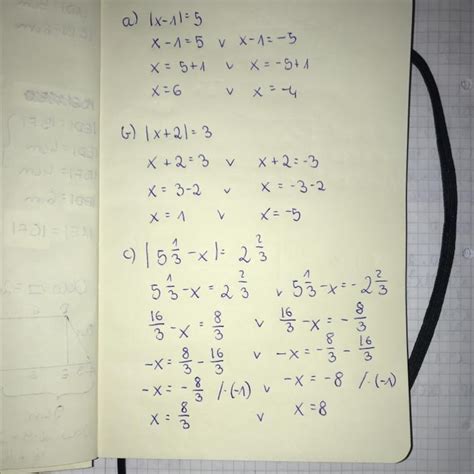 a) |x-1|=5
x-1=5 v x-1=-5
x=5+1 v x=-5+1
x=6 v x=-4
b) |x+2|=3
x+2=3 v x+2=-3
x=3-2 v x=-3-2
x=1 v x=-5
c) |5 1/3 -x|= 2 2/3
5 1/3 -x=2 2/3 v 5 1/3 -x=-2 2/3
16/3 -x= 8/3 v 16/3 -x=- 8/3
-x= 8/3 - 16/3 v -x=- 8/3 - 16/3
-x=- 8/3 /·(-1) v -x=-8 /·(-1)
x= 8/3 v x=8